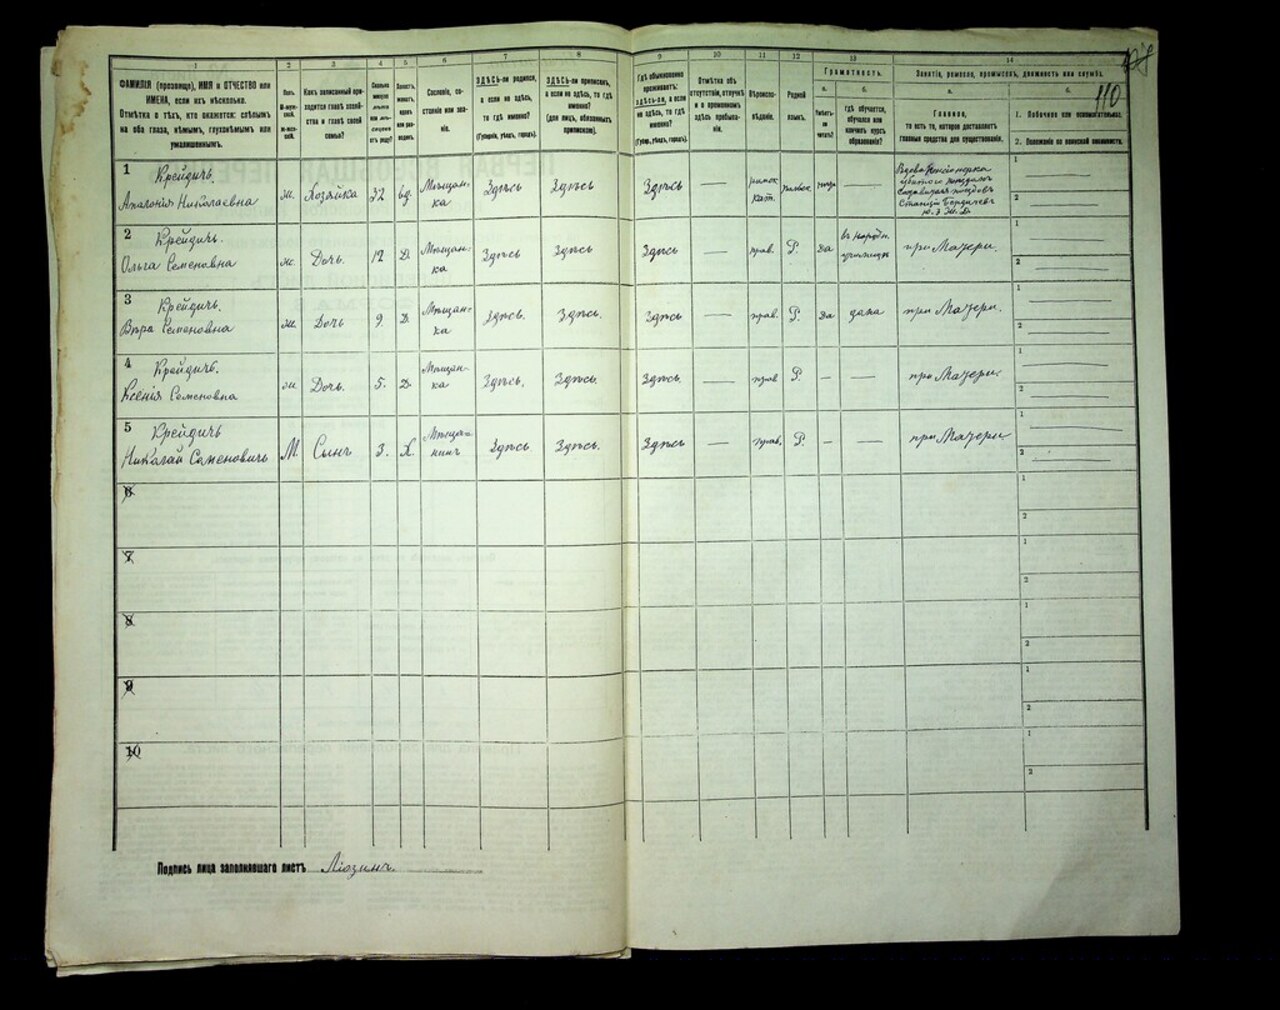 110
1 2 3 4 5 6 7 8 9 10 11 12 13 14
ФАМИЛІЯ (прозвище), ИМЯ и ОТЧЕСТВО или
ИМЕНА, если ихъ нѣсколько.
Отмѣтка о тѣхъ, кто окажется: слѣпымъ
на оба глаза, нѣмымъ, глухонѣмымъ или
умалишеннымъ.
Полъ.
М-муж-
ской.
Ж-жен-
скій.
Какъ записанный при-
ходится главѣ хозяй-
ства и главѣ своей
семьи?
Сколько
минуло
лѣтъ
или мѣ-
сяцевъ
отъ роду?
Холостъ,
женатъ,
вдовъ
или раз-
веденъ.
Сословіе, со-
стояніе или зва-
ніе.
ЗДѢСЬ-ли родился,
а если не здѣсь,
то гдѣ именно?
(Губернія, уѣздъ, городъ).
ЗДѢСЬ-ли приписанъ,
а если не здѣсь, то гдѣ
именно?
(для лицъ, обязанныхъ
припискою).
Гдѣ обыкновенно
проживаетъ:
здѣсь-ли, а если
не здѣсь, то гдѣ
именно?
(Губер., уѣздъ, городъ).
Отмѣтка объ
отсутствіи, отлучкѣ
и о временномъ
здѣсь пребыва-
ніи.
Вѣроиспо-
вѣданіе.
Родной
языкъ.
Грамотность.
а.
Умѣетъ-
ли
читать?
б.
Гдѣ обучается,
обучался или
кончилъ курсъ
образованія?
Занятіе, ремесло, промыселъ, должность или служба.
а.
Главное,
то есть то, которое доставляетъ
главныя средства для существованія.
б.
1. Побочное или вспомогательное.
2. Положеніе по воинской повинности.
1 Крейдичъ.
Апалонія Николаевна ж. Хозяйка 32 вд. Мѣщан-
ка Здѣсь Здѣсь Здѣсь — римск
кат. польск — Вдова Пенсіонерка
убитого поѣздомъ
Станціи Бердичевъ
Ю. З. Ж. Д. 1 2
2 Крейдичъ.
Ольга Семеновна ж. Дочь. 12 Д. Мѣщан-
ка Здѣсь Здѣсь Здѣсь — прав. Р. да въ народн.
училищѣ при Матери. 1 2
3 Крейдичъ.
Вѣра Семеновна ж. Дочь 9. Д. Мѣщан-
ка Здѣсь. Здѣсь. Здѣсь — прав. Р. да дома при Матери. 1 2
4 Крейдичъ.
Ксенія Семеновна ж Дочь. 5. Д. Мѣщан-
ка Здѣсь. Здѣсь. Здѣсь. — прав Р. — — при Матери. 1 2
5 Крейдичъ
Николай Семеновичъ М. Сынъ 3. Х. Мѣща-
нинъ Здѣсь Здѣсь. Здѣсь — прав. Р. — — при Матери 1 2
6 1 2
7 1 2
8 1 2
9 1 2
10 1 2
Подпись лица заполнявшаго листъ